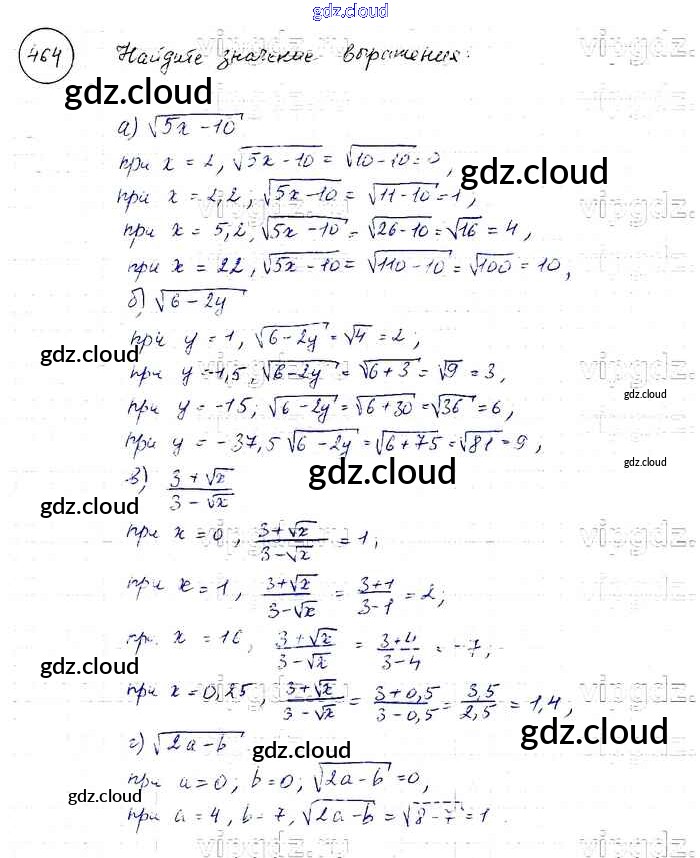 gdz.cloud
464 Найдите значение выражения:
gdz.cloud
а) √(5x − 10)
при x = 2, √(5x − 10) = √(10 − 10) = 0,
gdz.cloud
при x = 2,2, √(5x − 10) = √(11 − 10) = 1,
при x = 5,2, √(5x − 10) = √(26 − 10) = √16 = 4,
при x = 22, √(5x − 10) = √(110 − 10) = √100 = 10,
б) √(6 − 2y)
при y = 1, √(6 − 2y) = √4 = 2;
gdz.cloud
при y = -1,5, √(6 − 2y) = √(6 + 3) = √9 = 3,
при y = −15, √(6 − 2y) = √(6 + 30) = √36 = 6,
gdz.cloud
при y = − 37,5 √(6 − 2y) = √(6 + 75) = √81 = 9,
gdz.cloud
gdz.cloud
в) (3 + √x)/(3 − √x)
gdz.cloud
при x = 0, (3 + √x)/(3 − √x) = 1;
при x = 1, (3 + √x)/(3 − √x) = (3 + 1)/(3 − 1) = 2;
при x = 16, (3 + √x)/(3 − √x) = (3 + 4)/(3 − 4) = −7;
gdz.cloud
при x = 0,25, (3 + √x)/(3 − √x) = (3 + 0,5)/(3 − 0,5) = 3,5/2,5 = 1,4,
gdz.cloud
г) √(2a − b)
gdz.cloud
при a = 0; b = 0; √(2a − b) = 0,
gdz.cloud
при a = 4, b − 7, √(2a − b) = √(8 − 7) = 1